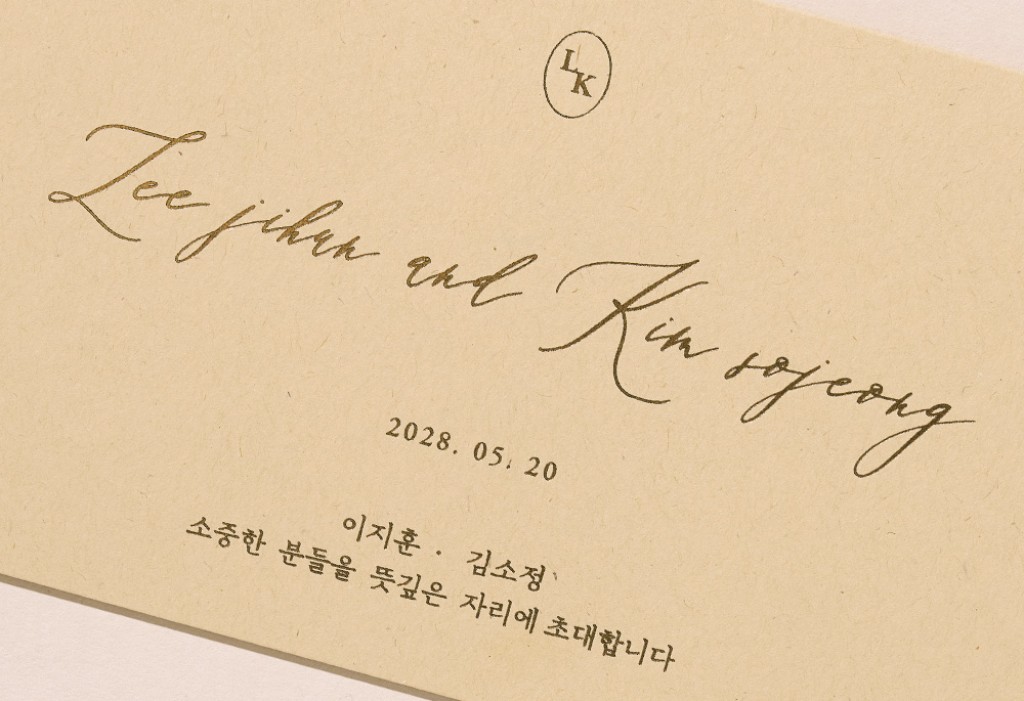 L K
Lee jihun and Kim sojeong
2028. 05. 20
이지훈 · 김소정
소중한 분들을 뜻깊은 자리에 초대합니다